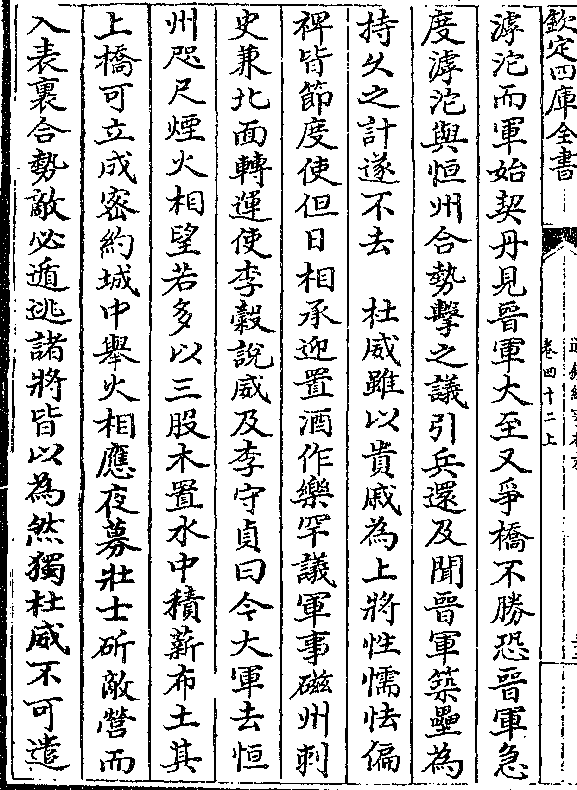 欽定四庫全書
卷四十二上
滹沱而軍始契丹見晉軍大至又爭橋不勝恐晉軍急
度滹沱與恒州合勢擊之議引兵還及聞晉軍築壘為
持久之計遂不去　杜威雖以貴戚為上將性懦怯偏
裨皆節度使但日相承迎置酒作樂罕議軍事磁州刺
史兼北面轉運使李榖說威及李守貞曰今大軍去恒
州咫尺煙火相望若多以三股木置水中積薪布土其
上橋可立成密約城中舉火相應夜募壯士斫敵營而
入表裏合勢敵必遁逃諸將皆以為然獨杜威不可遣